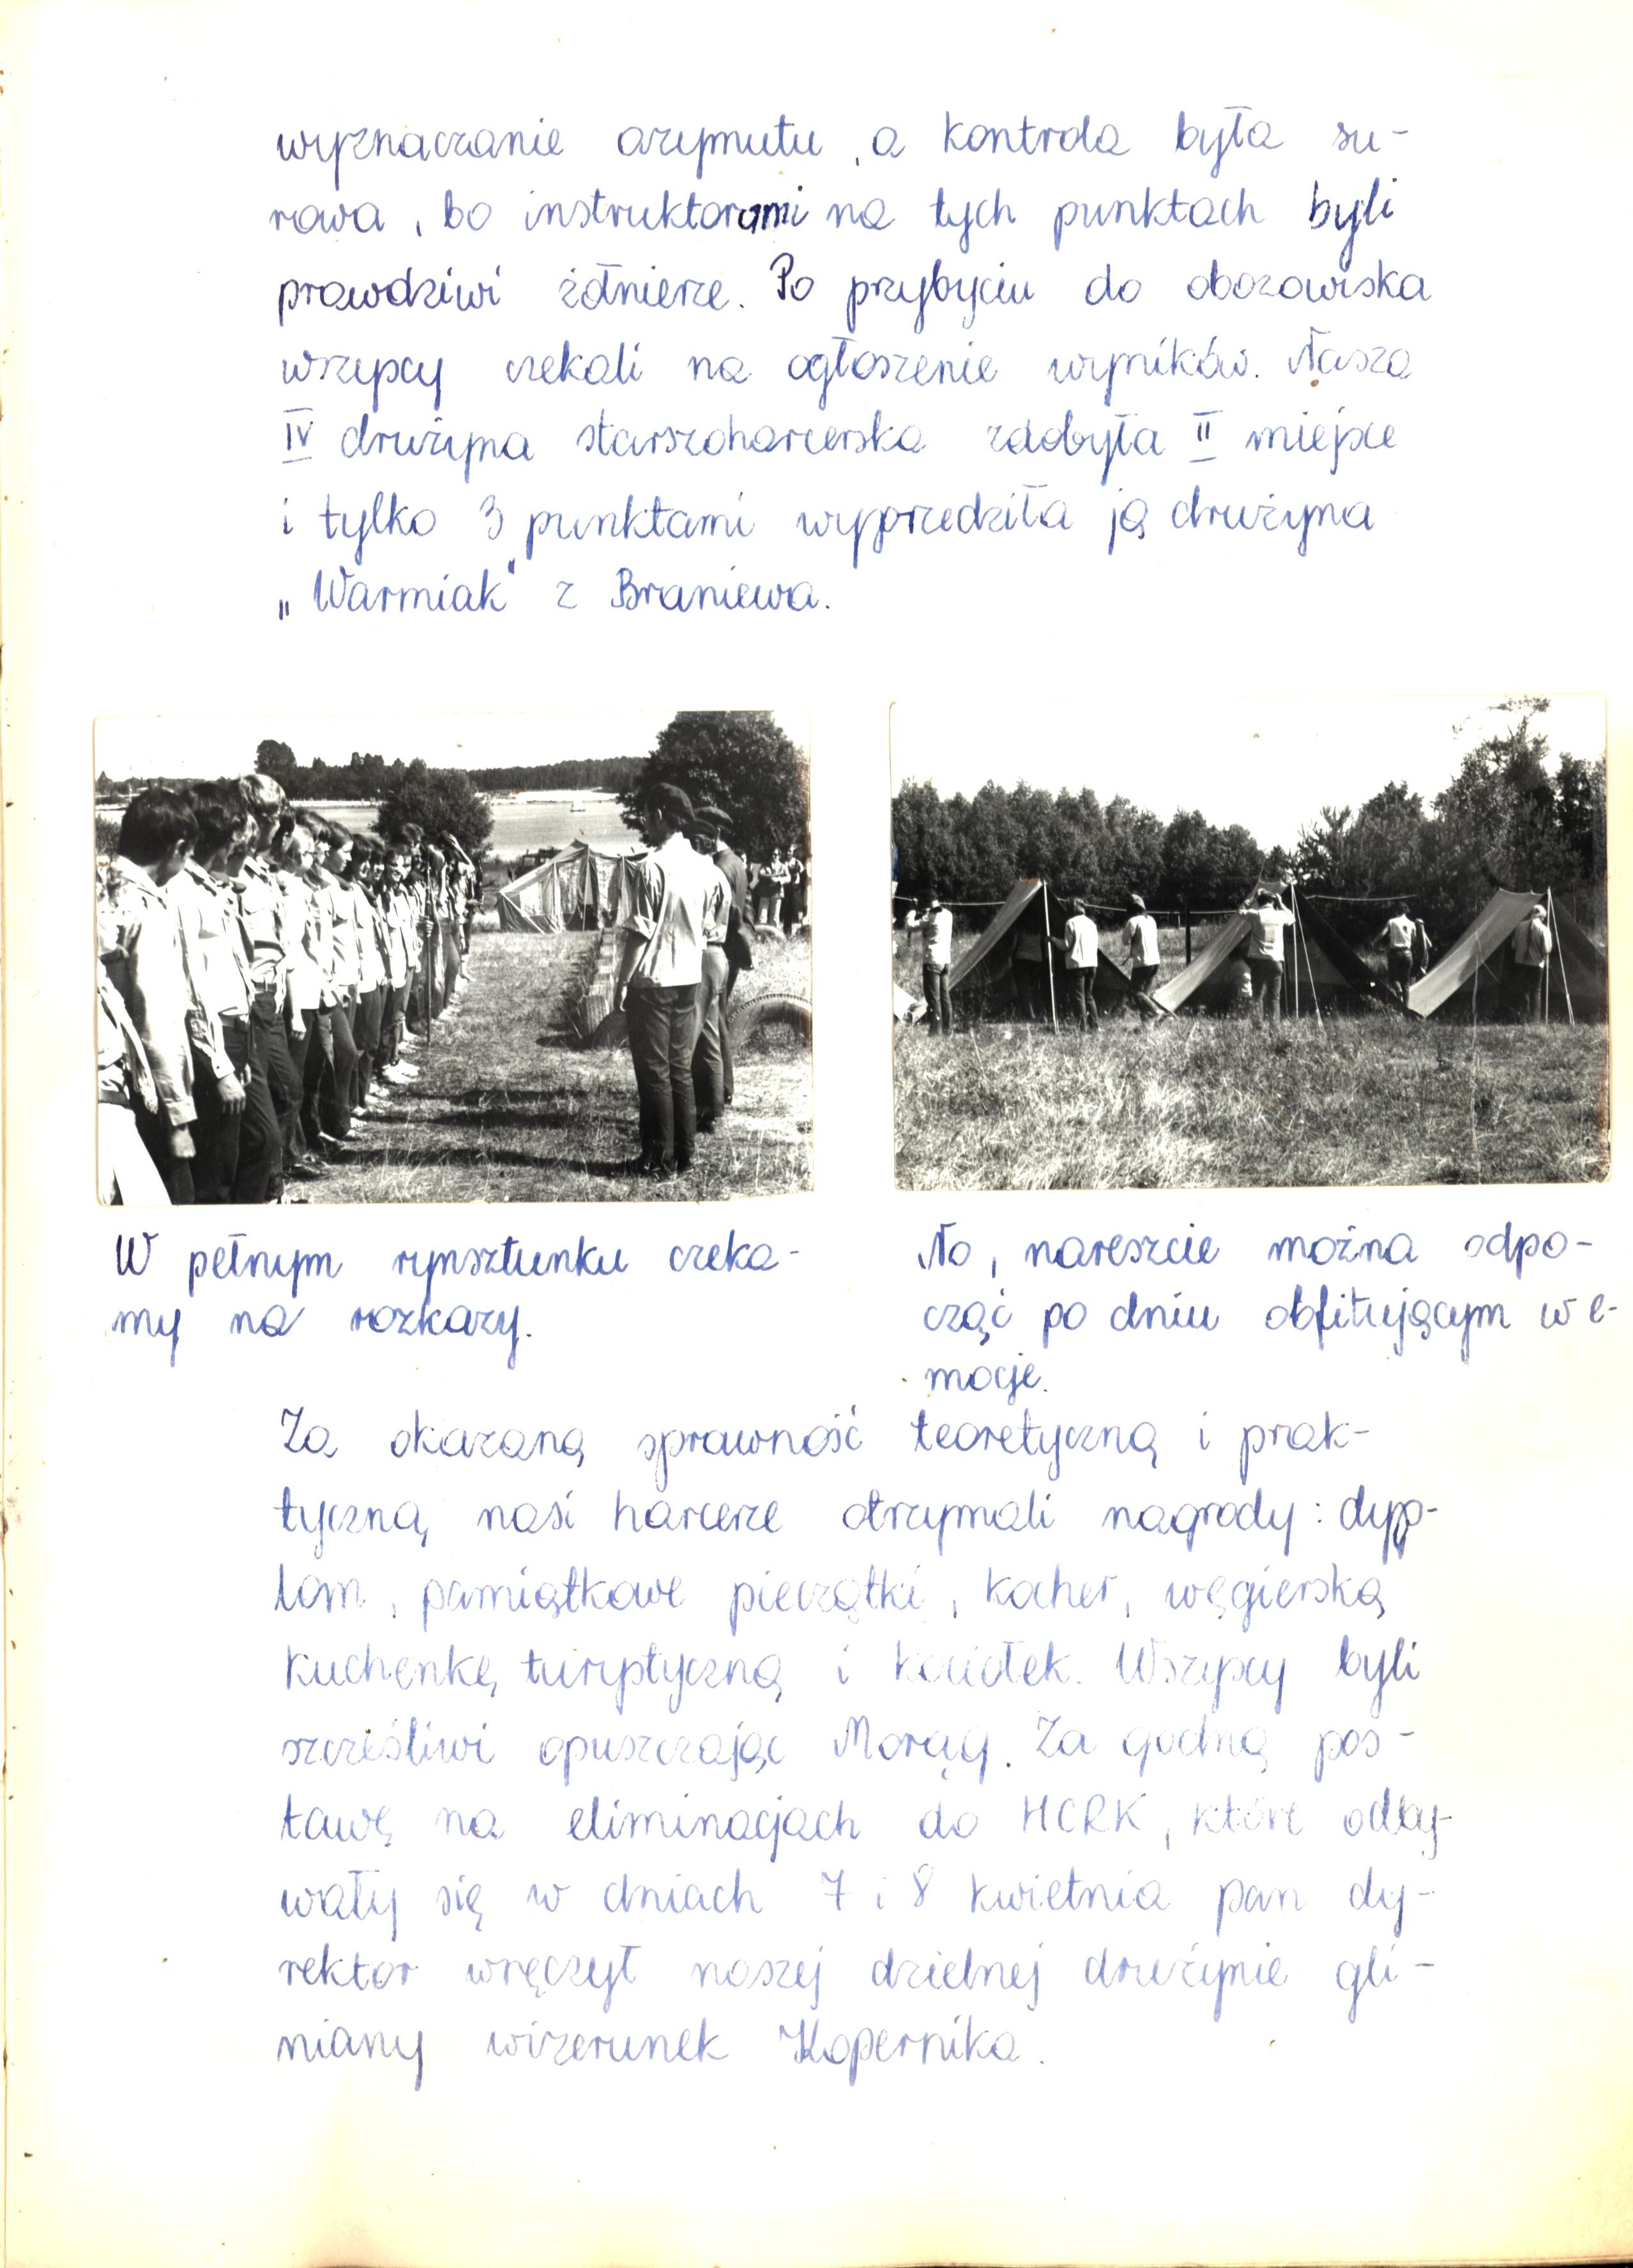 wyznaczanie azymutu, a kontrola była su-
rowa, bo instruktorami na tych punktach byli
prawdziwi żołnierze. Po przybyciu do obozowiska
wszyscy czekali na ogłoszenie wyników. Nasza
IV drużyna starszoharcerska zdobyła II miejsce
i tylko 3 punktami wyprzedziła ją drużyna
„Warmiak" z Braniewa.
W pełnym rynsztunku czeka-
my na rozkazy.
No, nareszcie można odpo-
cząć po dniu obfitującym w e-
mocje.
Za okazaną sprawność teoretyczną i prak-
tyczną nasi harcerze otrzymali nagrody: dyp-
lom, pamiątkowe pieczątki, kocher, węgierską
kuchenkę turystyczną i kociołek. Wszyscy byli
szczęśliwi opuszczając Morąg. Za godną pos-
tawę na eliminacjach do HCRK, które odby-
wały się w dniach 7 i 8 kwietnia pan dy-
rektor wręczył naszej dzielnej drużynie gli-
niany wizerunek Kopernika.